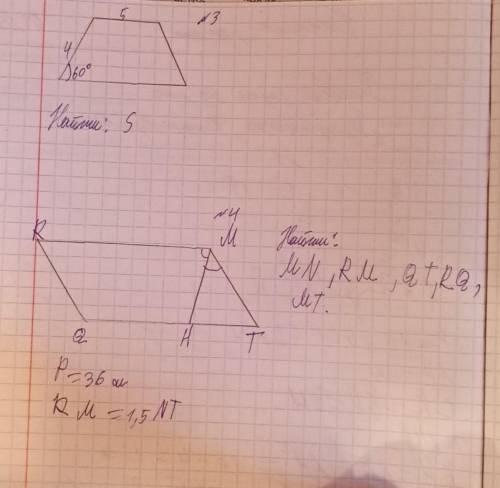 5
№3
4
60°
Найти: S
№4
R
M
Найти:
MN, RM, QT, RQ,
MT.
Q
H
T
P=36 см
RM=1,5 NT